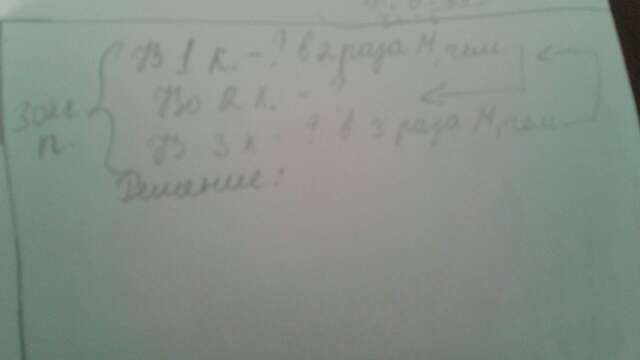 В 1 к. - ? в 2 раза м, чем
Во 2 к. - ?
п.
В 3 к - ? в 3 раза м, чем
Решение: